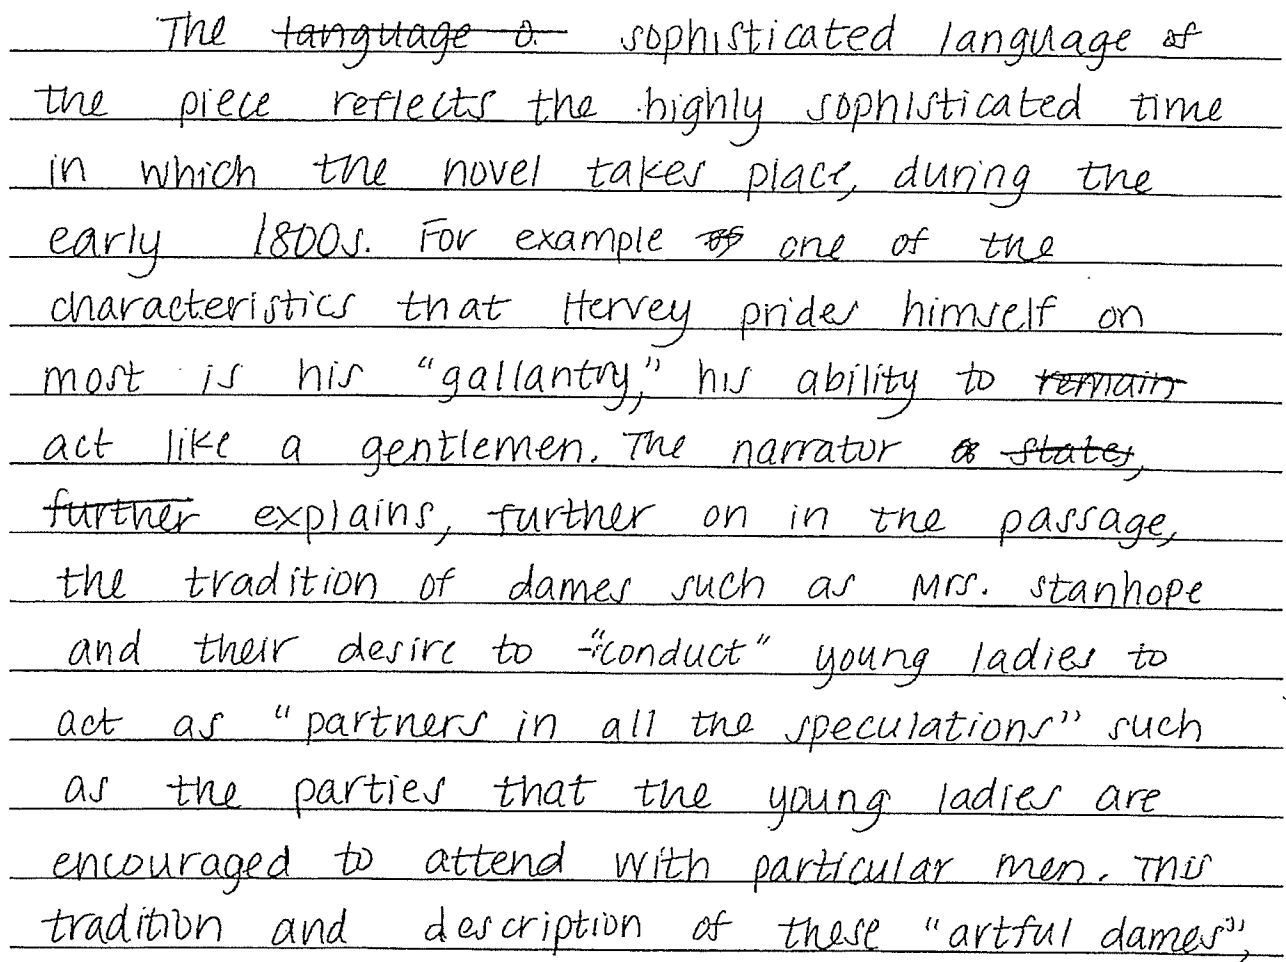 The ~~language o.~~ sophisticated language of
the piece reflects the highly sophisticated time
in which the novel takes place, during the
early 1800s. For example ~~of~~ one of the
characteristics that Hervey prides himself on
most is his "gallantry," his ability to ~~remain~~
act like a gentlemen. The narrator ~~states,~~
~~further~~ explains, further on in the passage,
the tradition of dames such as Mrs. Stanhope
and their desire to "conduct" young ladies to
act as "partners in all the speculations" such
as the parties that the young ladies are
encouraged to attend with particular men. This
tradition and description of these "artful dames",